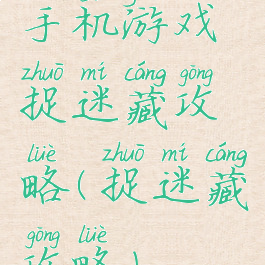 手机游戏
zhuō mí cáng gōng
捉迷藏攻
lüè zhuō mí cáng
略(捉迷藏
gōng lüè
攻略)